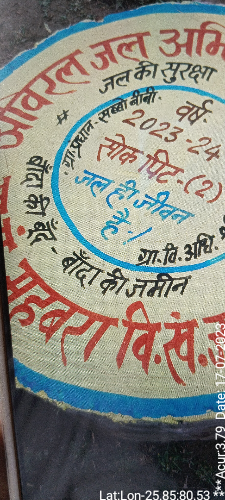 अविरल जल अभि
जल की सुरक्षा
ग्रा.प्रधान - सब्बो बीबी.
वर्ष-
2023-24
सोक पिट-(2)
जल ही जीवन
है-!
ग्रा.वि.अधि.
बाँदा की बूँद - बाँदा की जमीन
महबरा वि.खं.
Lat:Lon-25.85:80.53
***Acur:3.79 Date: 17-07-2023